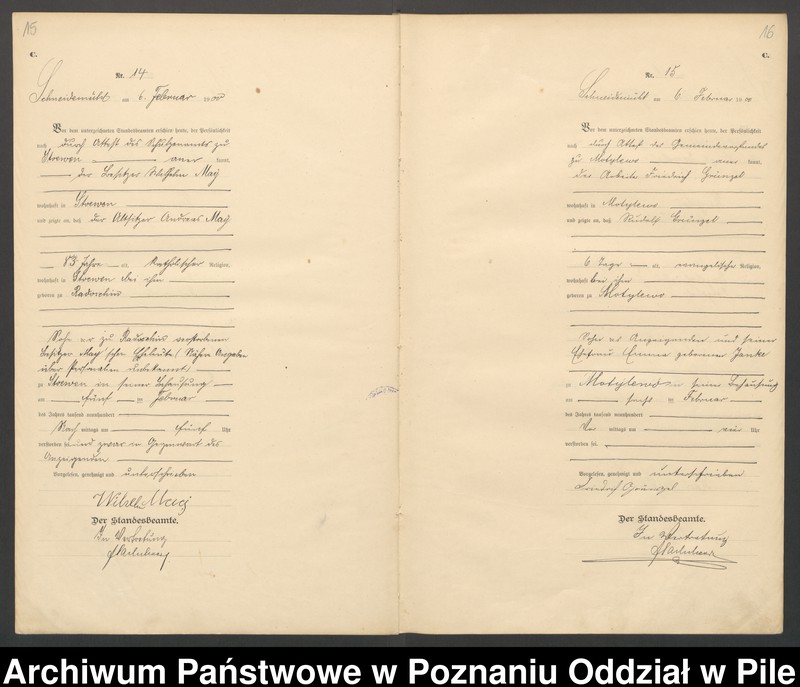 15
C.
Nr. 14
Schneidemühl am 6. Februar 1900
Vor dem unterzeichneten Standesbeamten erschien heute, der Persönlichkeit
nach durch Attest des Schulzenamts zu
Stoewen kannt,
der Besitzer Wilhelm May
wohnhaft in Stoewen
und zeigte an, daß der Altsitzer Andreas May
83 Jahre alt, katholischer Religion,
wohnhaft in Stoewen bei ihm
geboren zu
Sohn der zu verstorbenen
Besitzer May'schen Eheleute (Nähere Angaben
über Personalien unbekannt)
zu Stoewen in seiner Behausung
am fünf ten Februar
des Jahres tausend neunhundert
Nach mittags um fünf Uhr
verstorben sei und zwar in Gegenwart des
Anzeigenden
Vorgelesen, genehmigt und unterschrieben
Wilhelm May
Der Standesbeamte.
In Vertretung
16
C.
Nr. 15
Schneidemühl am 6 Februar 1900
Vor dem unterzeichneten Standesbeamten erschien heute, der Persönlichkeit
nach durch Attest des Gemeindevorstandes
zu Motylewo kannt,
der Arbeiter Friedrich Grünzel
wohnhaft in Motylewo
und zeigte an, daß Rudolf Grünzel
6 Tage alt, evangelischer Religion,
wohnhaft bei ihm
geboren zu Motylewo
Sohn des Anzeigenden und seiner
Ehefrau Emma geborenen Janke
zu Motylewo in seiner Behausung
am sechs ten Februar
des Jahres tausend neunhundert
Vor mittags um vier Uhr
verstorben sei
Vorgelesen, genehmigt und unterschrieben
Friedrich Grünzel
Der Standesbeamte.
In Vertretung
Archiwum Państwowe w Poznaniu Oddział w Pile